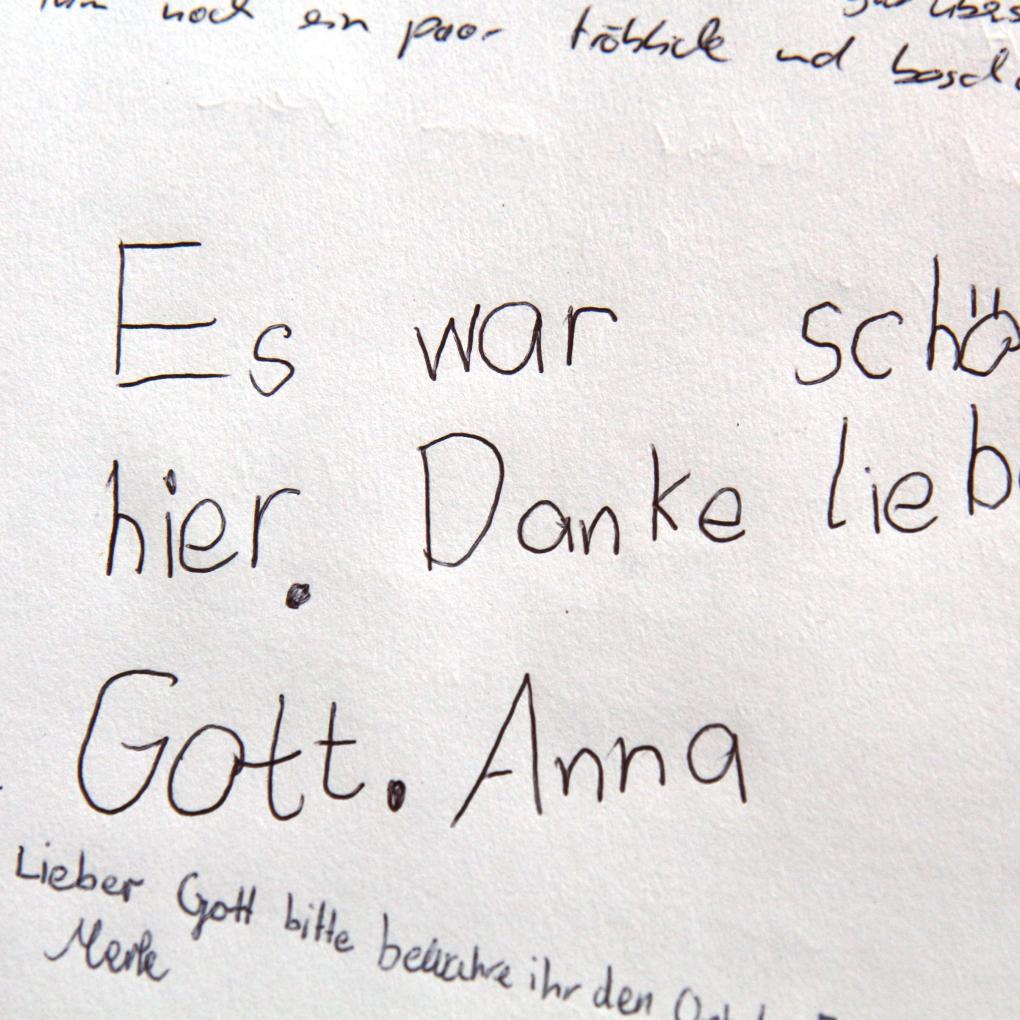 noch ein paar fröhliche und
Es war schö
hier. Danke lieb
Gott. Anna
Lieber Gott bitte bewahre ihr den
Merle